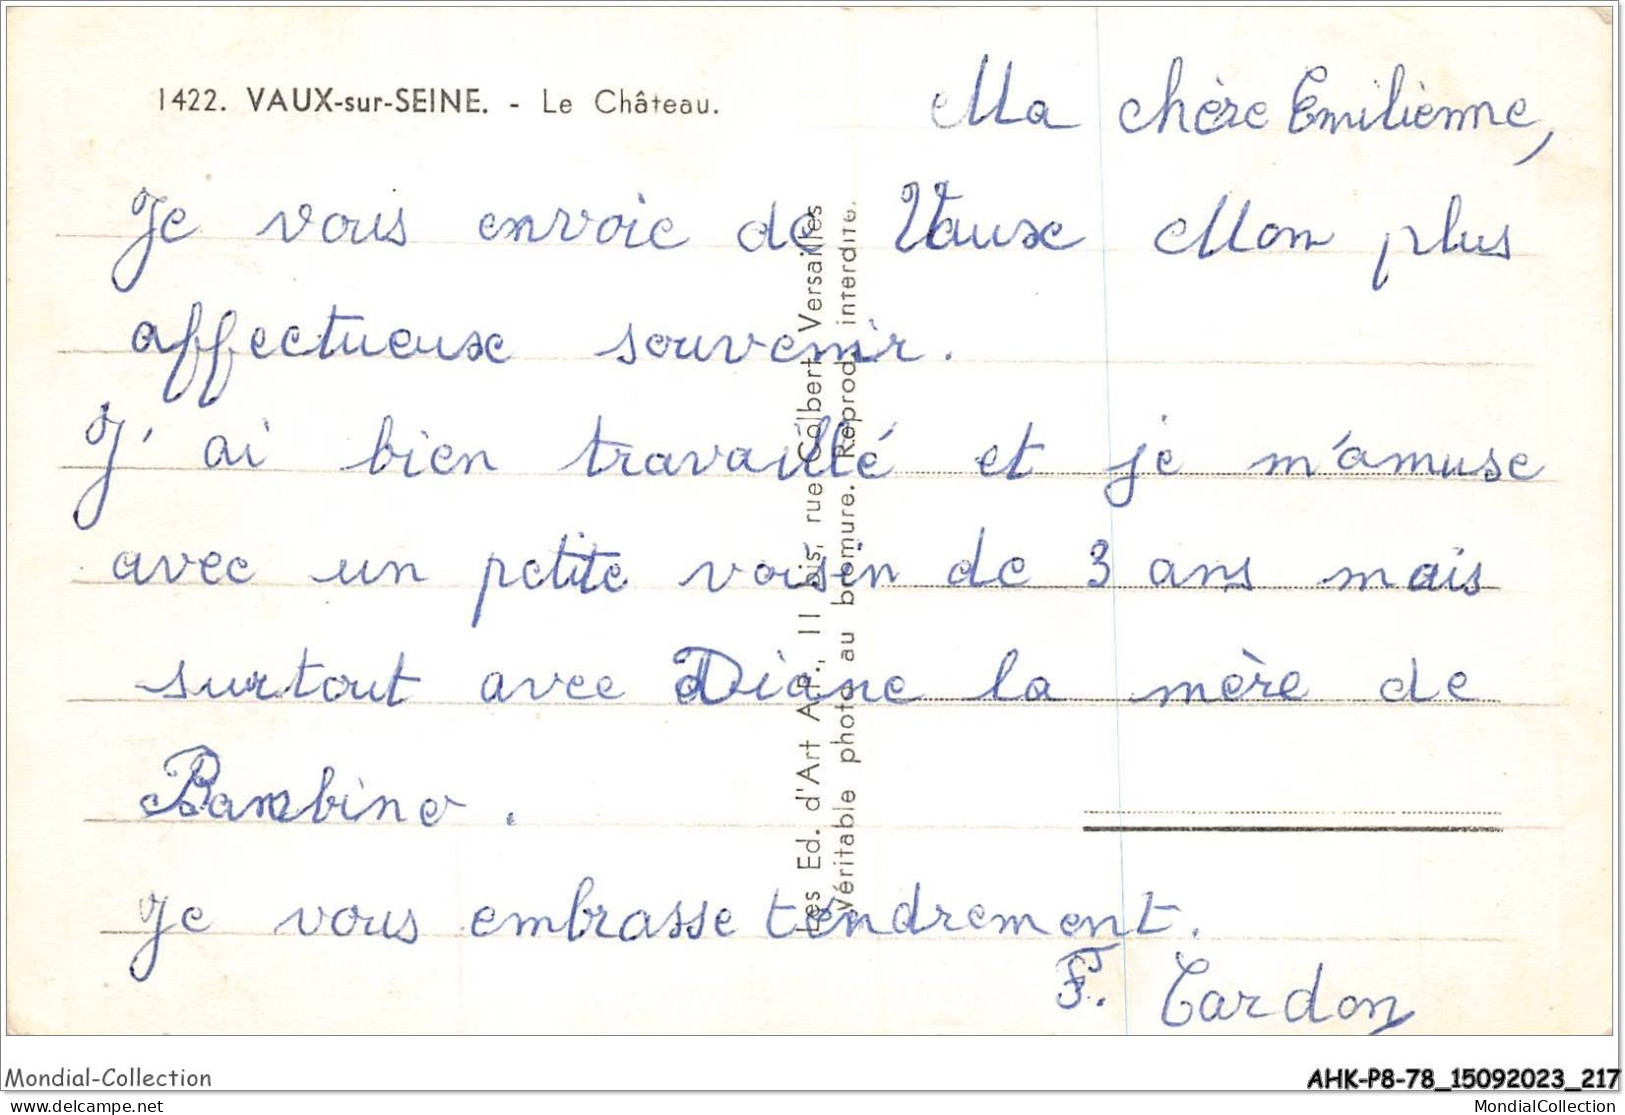 1422. VAUX-sur-SEINE. - Le Château.
Ma chère Emilienne,
Je vous envoie de Vaux Mon plus
affectueux souvenir.
J'ai bien travaillé et je m'amuse
avec un petite voisin de 3 ans mais
surtout avec Diane la mère de
Bambino.
Je vous embrasse tendrement.
F. Tardon
Les Ed. d'Art A.P., 11 bis, rue Colbert, Versailles
Véritable photo au bromure. Reprod. interdite.
Mondial-Collection
AHK-P8-78_15092023_217
delcampe.net
MondialCollection